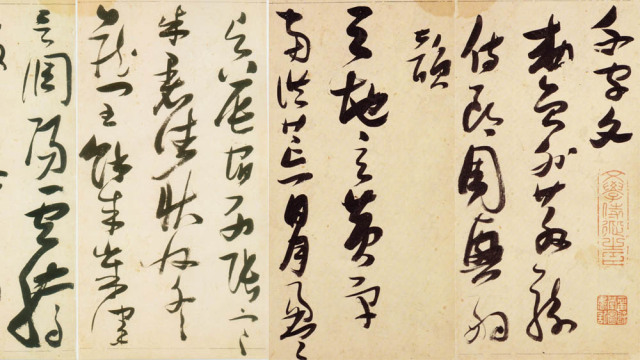 千字文
敕員外散騎
侍郎周興嗣
次韻
天地玄黃宇
宙洪荒日月盈
昃辰宿列張寒
來暑往秋收冬
藏閏餘成歲律
呂調陽雲騰
文學侍從之臣